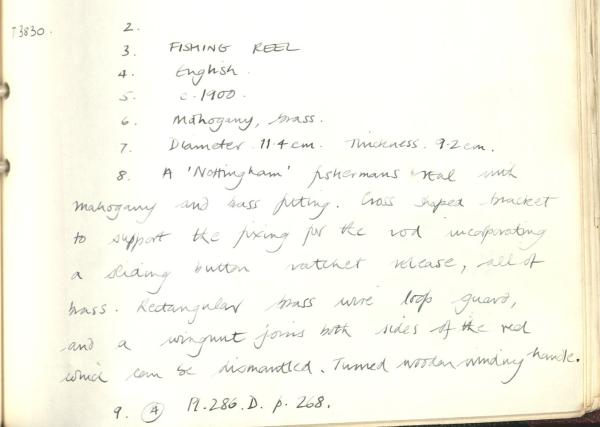 T3830.
2.
3. FISHING REEL
4. English.
5. c. 1900.
6. Mahogany, brass.
7. Diameter. 11.4 cm. Thickness. 9.2 cm.
8. A 'Nottingham' fishermans real with
mahogany and bass fitting. Cross shaped bracket
to support the fixing for the rod incorporating
a sliding button ratchet release, all of
brass. Rectangular brass wire loop guard,
and a wingnut joins both sides of the reel
which can be dismantled. Turned wooden winding handle.
9. 4 Pl. 286. D. p. 268.